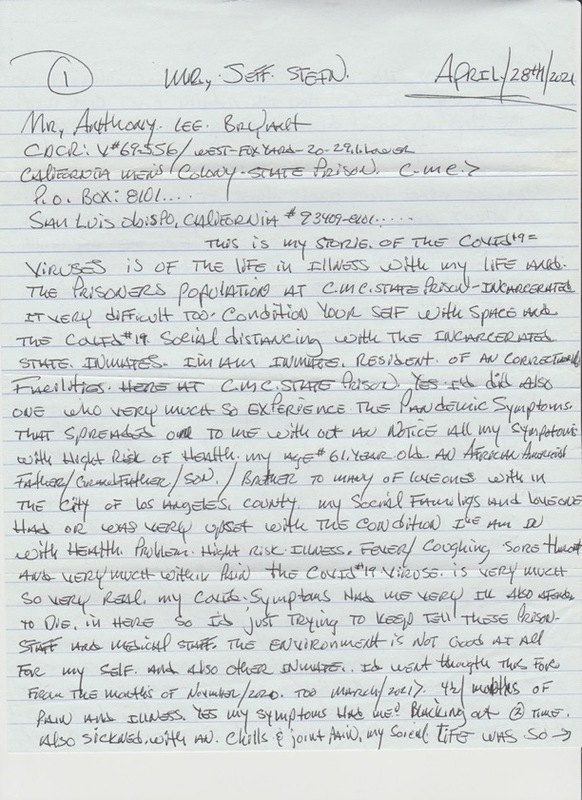 1 Mr, Jeff. Stein. April/28th/2021
Mr, Anthony. Lee. Bryant
CDCR: V#69556/West-Fox Yard-20-29. Lower
California Men's Colony-State Prison. C.M.C.>
P.O. Box: 8101....
San Luis Obispo, California #93409-8101.....
This is my storie. of the Covid#19=
Viruses is of the life in illness with my life and.
the prisoners population at C.M.C. State Prison-incarcerated
it very difficult too. condition your self with space and
the Covid#19. social distancing with the incarcerated
state. inmates. I'm am inmate. resident. of an correctional
facilities. here at C.M.C. State Prison. Yes. I'd did also
one who very much so experience the pandemic symptoms.
that spreaded on to me with out an notice all my symptoms
with hight risk of health. my age# 61. year old. an African American
father/grandfather/son./brother to many of loveones with in
the city of Los Angeles, county. my social familys and loveone
had or was very upset with the condition I've am in
with health. problem. hight risk illness. fever/coughing, sore throat
and very much within pain the Covid#19 viruse. is very much
so very real. my Covid. symptoms had me very ill also
to die. in here so I'd just trying to keep tell these prison-
staff and medical staff. the environment is not good at all
for my self. and also other inmate. I'd went through this for
from the months of November/2020. too March/2021>. 4½/months of
pain and illness. Yes my symptoms had me? blacking out (2) time.
also sickned. with an. chills & joint pain, my social life was so →